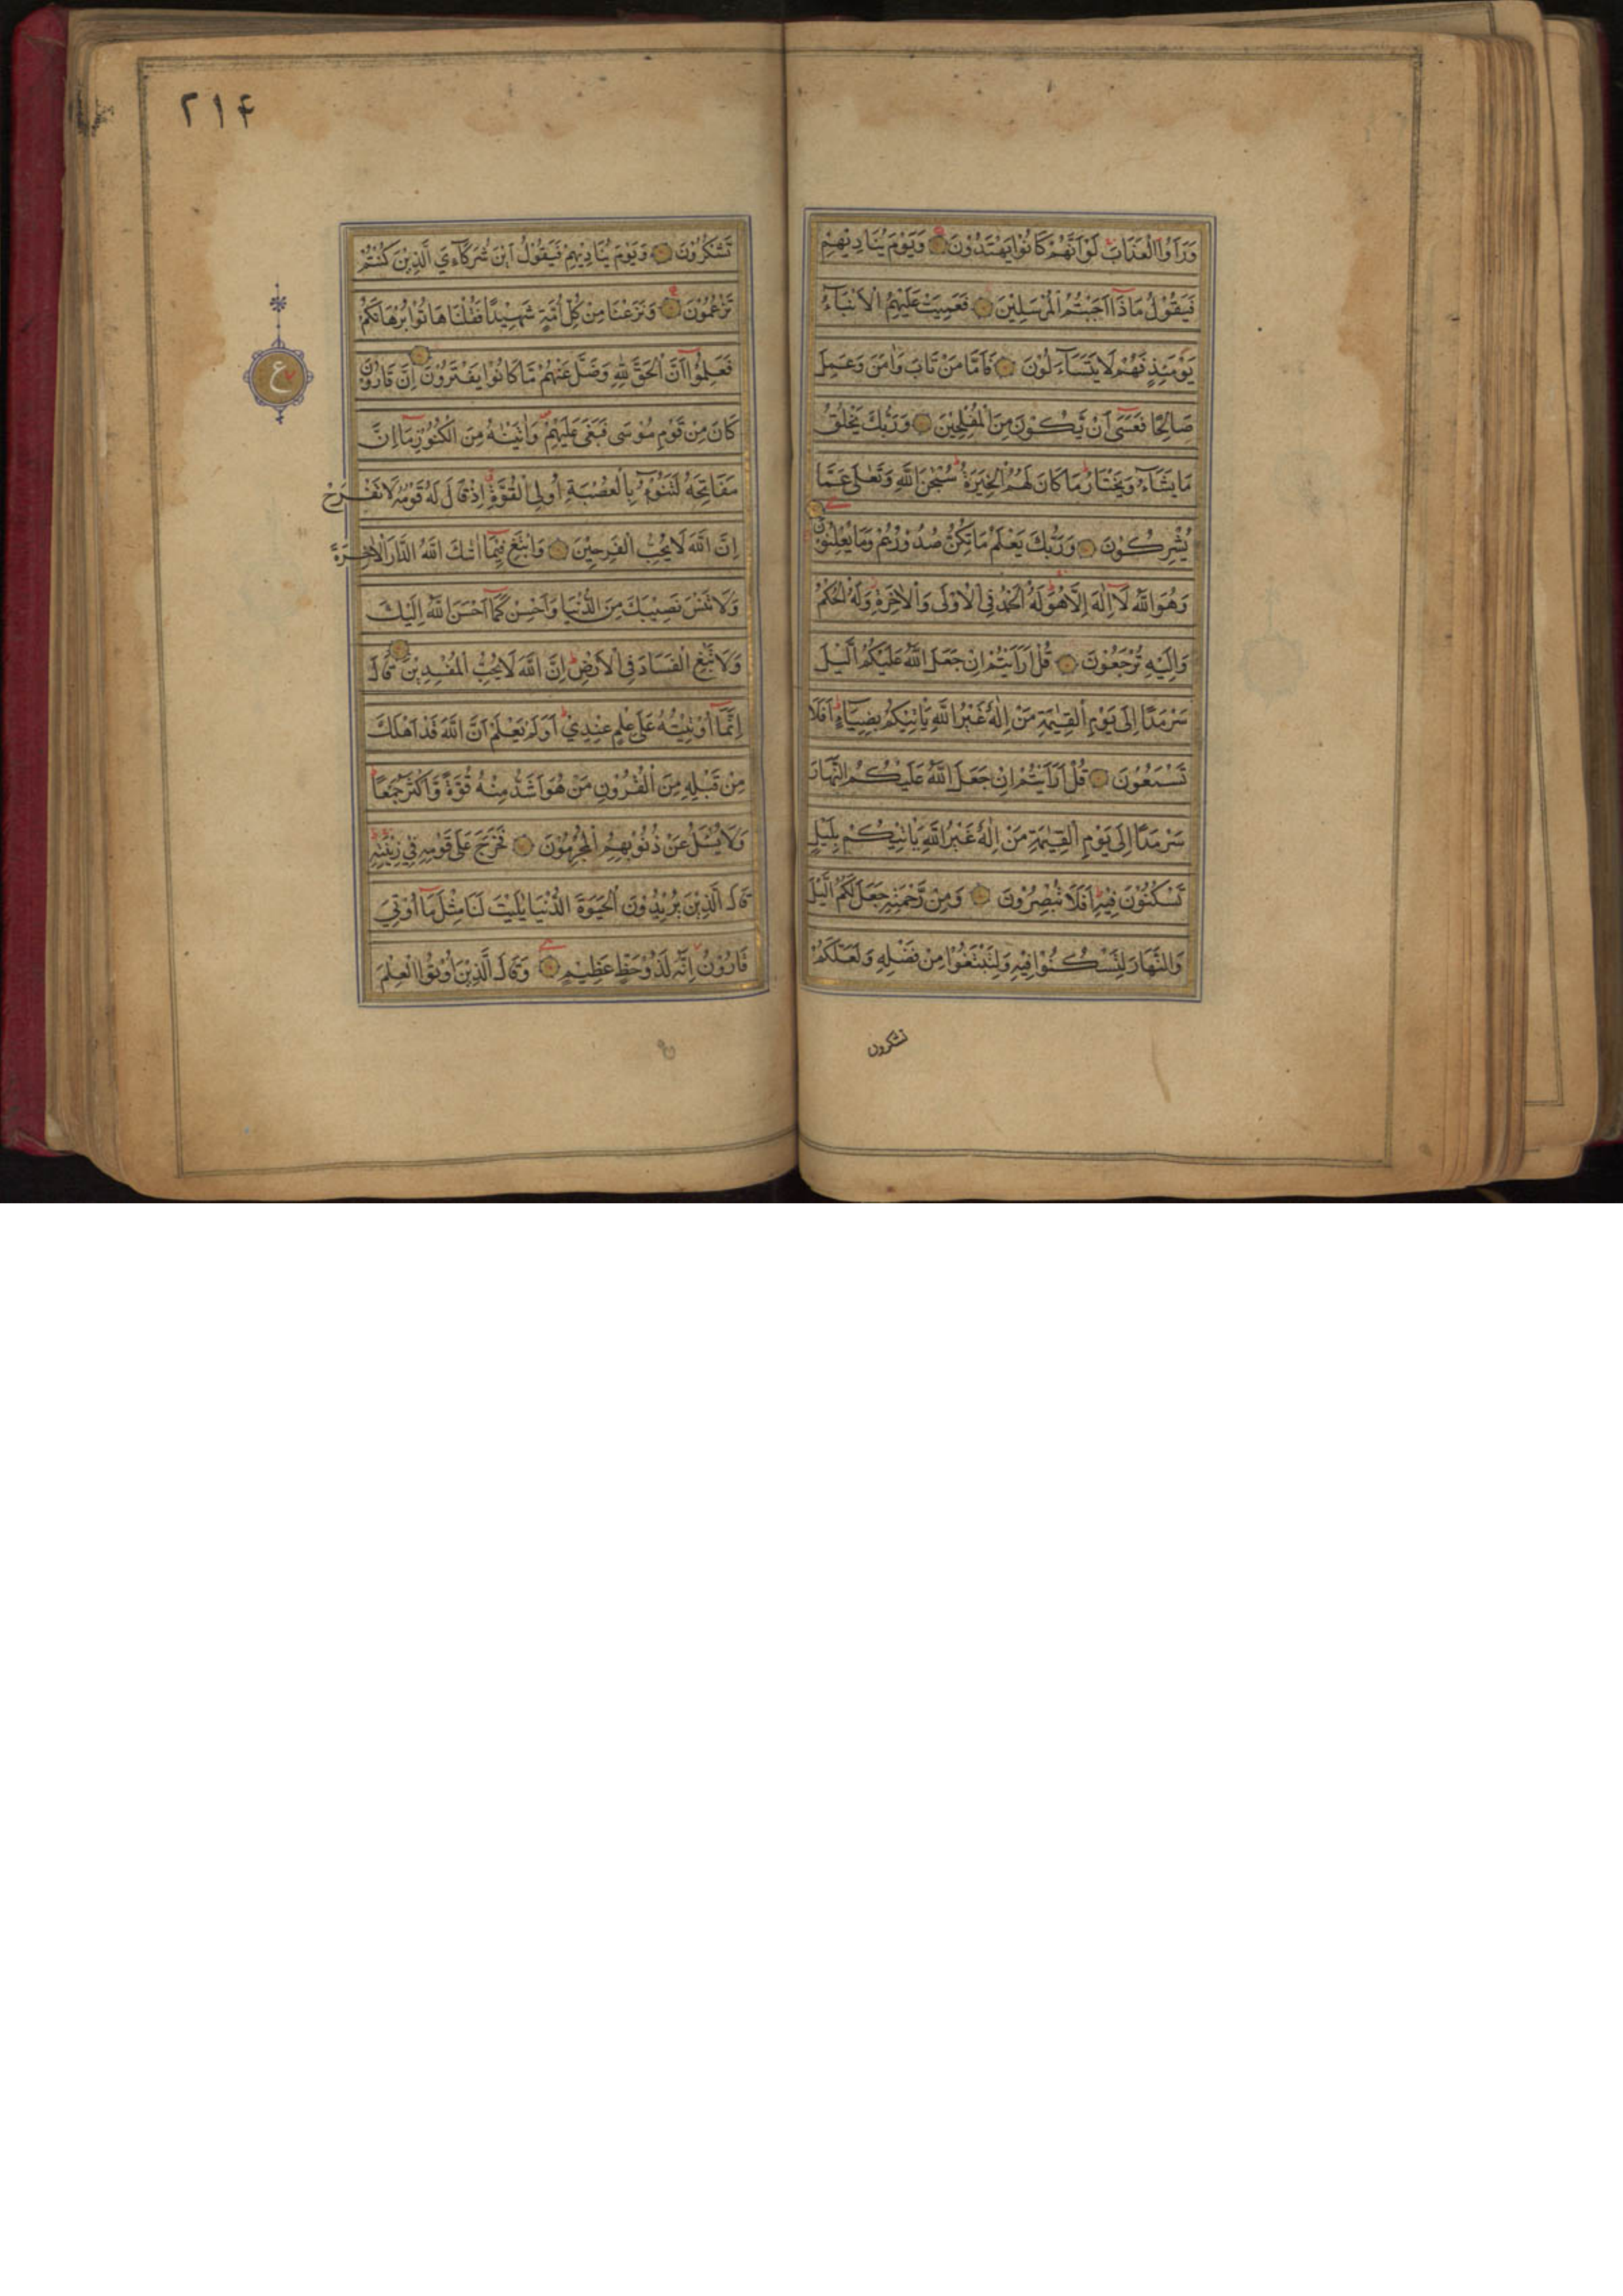 وَرَاَوُا الْعَذَابَ لَوْ اَنَّهُمْ كَانُوْا يَهْتَدُوْنَ وَيَوْمَ يُنَادِيْهِمْ
فَيَقُوْلُ مَاذَآ اَجَبْتُمُ الْمُرْسَلِيْنَ فَعَمِيَتْ عَلَيْهِمُ الْاَنْبَآءُ
يَوْمَئِذٍ فَهُمْ لَا يَتَسَآءَلُوْنَ فَاَمَّا مَنْ تَابَ وَاٰمَنَ وَعَمِلَ
صَالِحًا فَعَسٰٓى اَنْ يَّكُوْنَ مِنَ الْمُفْلِحِيْنَ وَرَبُّكَ يَخْلُقُ
مَا يَشَآءُ وَيَخْتَارُ مَا كَانَ لَهُمُ الْخِيَرَةُ سُبْحٰنَ اللّٰهِ وَتَعٰلٰى عَمَّا
يُشْرِكُوْنَ وَرَبُّكَ يَعْلَمُ مَا تُكِنُّ صُدُوْرُهُمْ وَمَا يُعْلِنُوْنَ
وَهُوَ اللّٰهُ لَآ اِلٰهَ اِلَّا هُوَ لَهُ الْحَمْدُ فِي الْاُوْلٰى وَالْاٰخِرَةِ وَلَهُ الْحُكْمُ
وَاِلَيْهِ تُرْجَعُوْنَ قُلْ اَرَاَيْتُمْ اِنْ جَعَلَ اللّٰهُ عَلَيْكُمُ الَّيْلَ
سَرْمَدًا اِلٰى يَوْمِ الْقِيٰمَةِ مَنْ اِلٰهٌ غَيْرُ اللّٰهِ يَاْتِيْكُمْ بِضِيَآءٍ اَفَلَا
تَسْمَعُوْنَ قُلْ اَرَاَيْتُمْ اِنْ جَعَلَ اللّٰهُ عَلَيْكُمُ النَّهَارَ
سَرْمَدًا اِلٰى يَوْمِ الْقِيٰمَةِ مَنْ اِلٰهٌ غَيْرُ اللّٰهِ يَاْتِيْكُمْ بِلَيْلٍ
تَسْكُنُوْنَ فِيْهِ اَفَلَا تُبْصِرُوْنَ وَمِنْ رَّحْمَتِهٖ جَعَلَ لَكُمُ الَّيْلَ
وَالنَّهَارَ لِتَسْكُنُوْا فِيْهِ وَلِتَبْتَغُوْا مِنْ فَضْلِهٖ وَلَعَلَّكُمْ
تشكرون
۲۱۴
تَشْكُرُوْنَ وَيَوْمَ يُنَادِيْهِمْ فَيَقُوْلُ اَيْنَ شُرَكَآءِيَ الَّذِيْنَ كُنْتُمْ
تَزْعُمُوْنَ وَنَزَعْنَا مِنْ كُلِّ اُمَّةٍ شَهِيْدًا فَقُلْنَا هَاتُوْا بُرْهَانَكُمْ
فَعَلِمُوْٓا اَنَّ الْحَقَّ لِلّٰهِ وَضَلَّ عَنْهُمْ مَّا كَانُوْا يَفْتَرُوْنَ اِنَّ قَارُوْنَ
ع
كَانَ مِنْ قَوْمِ مُوْسٰى فَبَغٰى عَلَيْهِمْ وَاٰتَيْنٰهُ مِنَ الْكُنُوْزِ مَآ اِنَّ
مَفَاتِحَهٗ لَتَنُوْٓءُ بِالْعُصْبَةِ اُولِي الْقُوَّةِ اِذْ قَالَ لَهٗ قَوْمُهٗ لَا تَفْرَحْ
اِنَّ اللّٰهَ لَا يُحِبُّ الْفَرِحِيْنَ وَابْتَغِ فِيْمَآ اٰتٰىكَ اللّٰهُ الدَّارَ الْاٰخِرَةَ
وَلَا تَنْسَ نَصِيْبَكَ مِنَ الدُّنْيَا وَاَحْسِنْ كَمَآ اَحْسَنَ اللّٰهُ اِلَيْكَ
وَلَا تَبْغِ الْفَسَادَ فِي الْاَرْضِ اِنَّ اللّٰهَ لَا يُحِبُّ الْمُفْسِدِيْنَ قَالَ
اِنَّمَآ اُوْتِيْتُهٗ عَلٰى عِلْمٍ عِنْدِيْ اَوَلَمْ يَعْلَمْ اَنَّ اللّٰهَ قَدْ اَهْلَكَ
مِنْ قَبْلِهٖ مِنَ الْقُرُوْنِ مَنْ هُوَ اَشَدُّ مِنْهُ قُوَّةً وَّاَكْثَرُ جَمْعًا
وَلَا يُسْئَلُ عَنْ ذُنُوْبِهِمُ الْمُجْرِمُوْنَ فَخَرَجَ عَلٰى قَوْمِهٖ فِيْ زِيْنَتِهٖ
قَالَ الَّذِيْنَ يُرِيْدُوْنَ الْحَيٰوةَ الدُّنْيَا يٰلَيْتَ لَنَا مِثْلَ مَآ اُوْتِيَ
قَارُوْنُ اِنَّهٗ لَذُوْ حَظٍّ عَظِيْمٍ وَقَالَ الَّذِيْنَ اُوْتُوا الْعِلْمَ